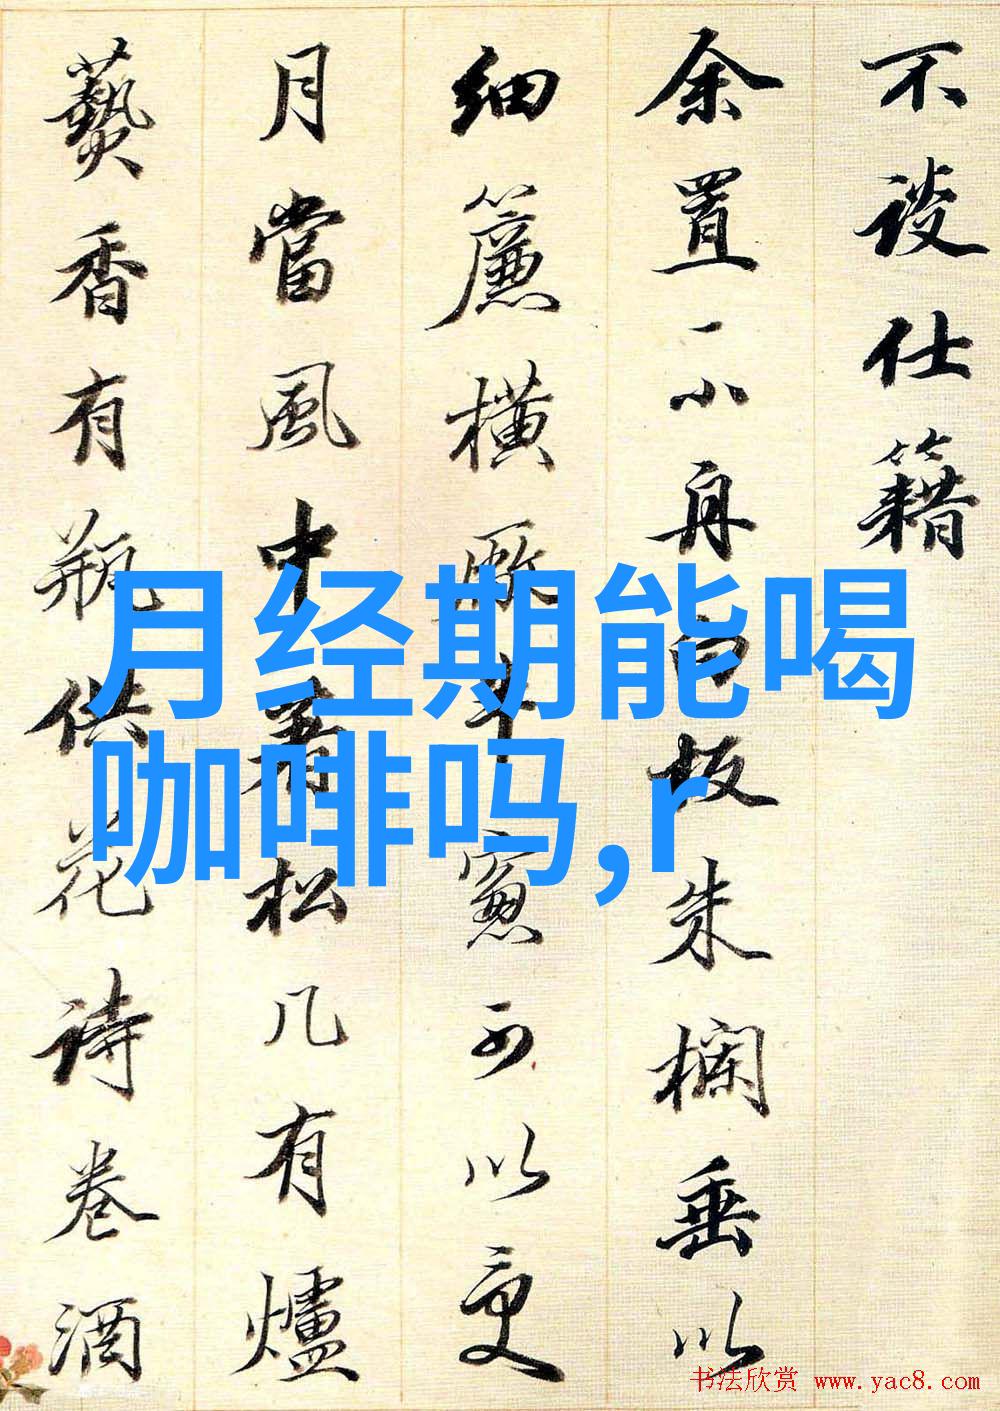 不談仕籍
余置一小舟白板朱欄垂以
細簾橫半窻可以受
月當風中著松几有爐
爇香有瓶供花詩卷酒
月经期能喝
咖啡吗,r
书法欣赏 www.yac8.com